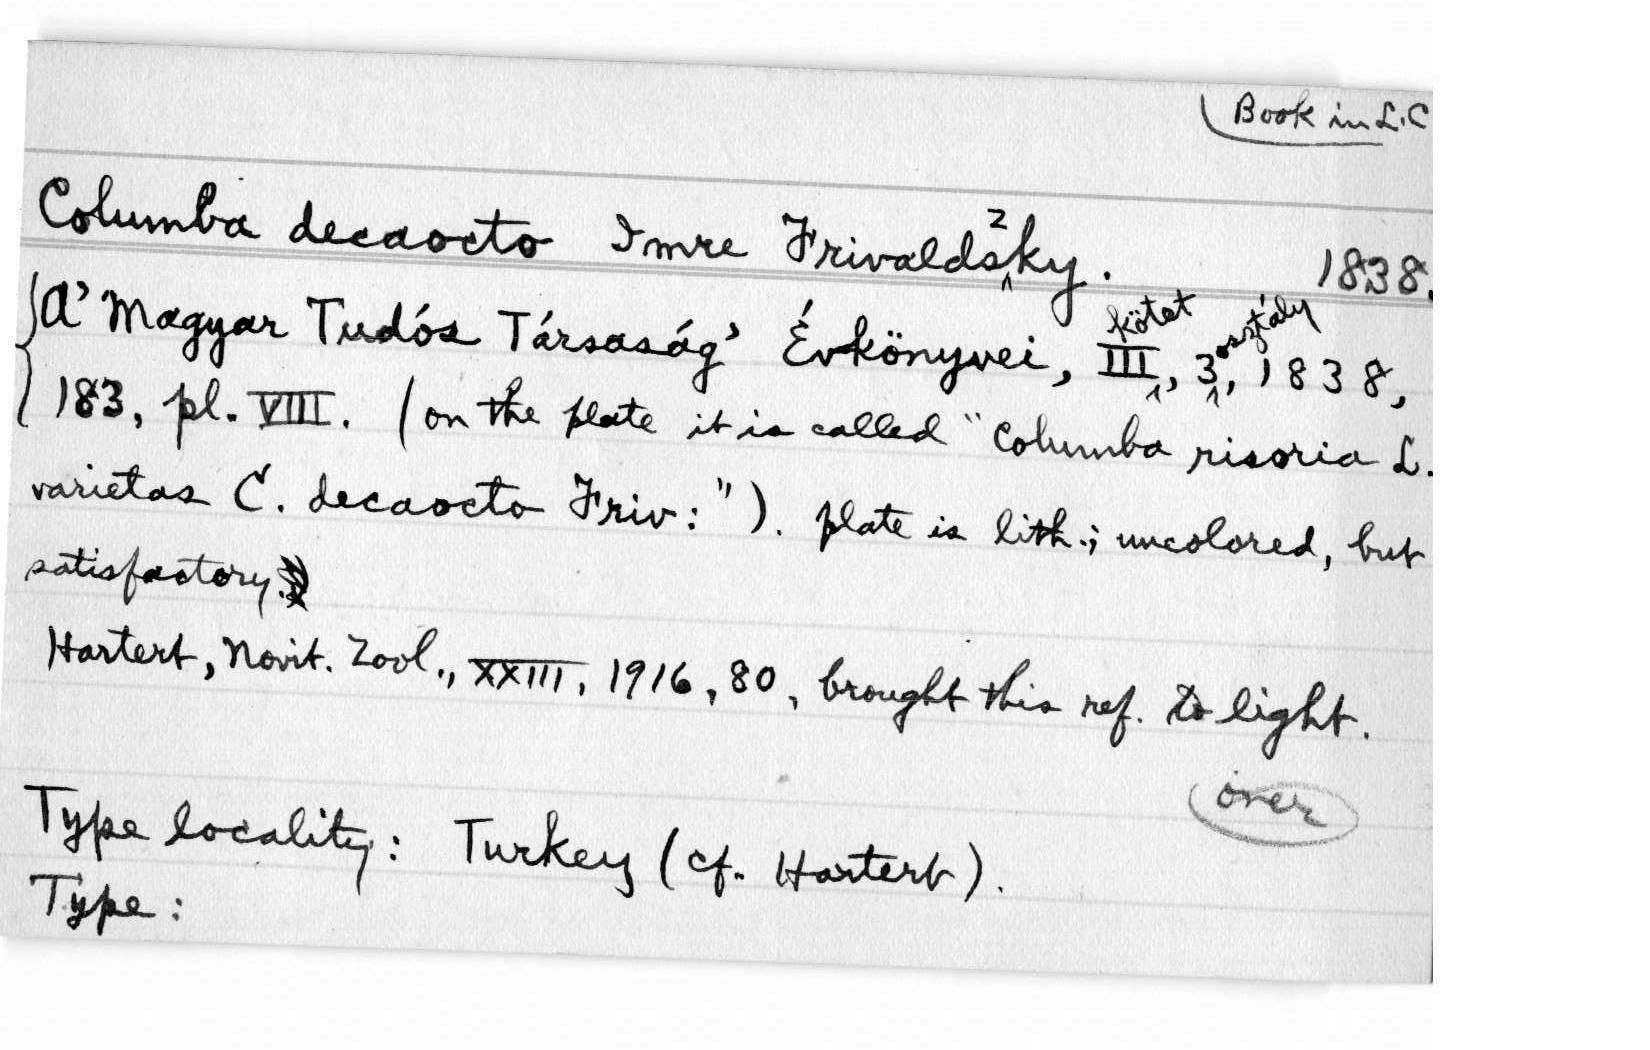 Book in L.C
Columba decaocto Imre Frivaldszky. 1838.
A' Magyar Tudós Társaság' Évkönyvei, III kötet, 3 osztály, 1838,
183, pl. VIII. (on the plate it is called "Columba risoria L.
varietas C. decaocto Friv:"). plate is lith.; uncolored, but
satisfactory.
Hartert, Novit. Zool., XXIII, 1916, 80, brought this ref. to light.
over
Type locality: Turkey (cf. Hartert).
Type: